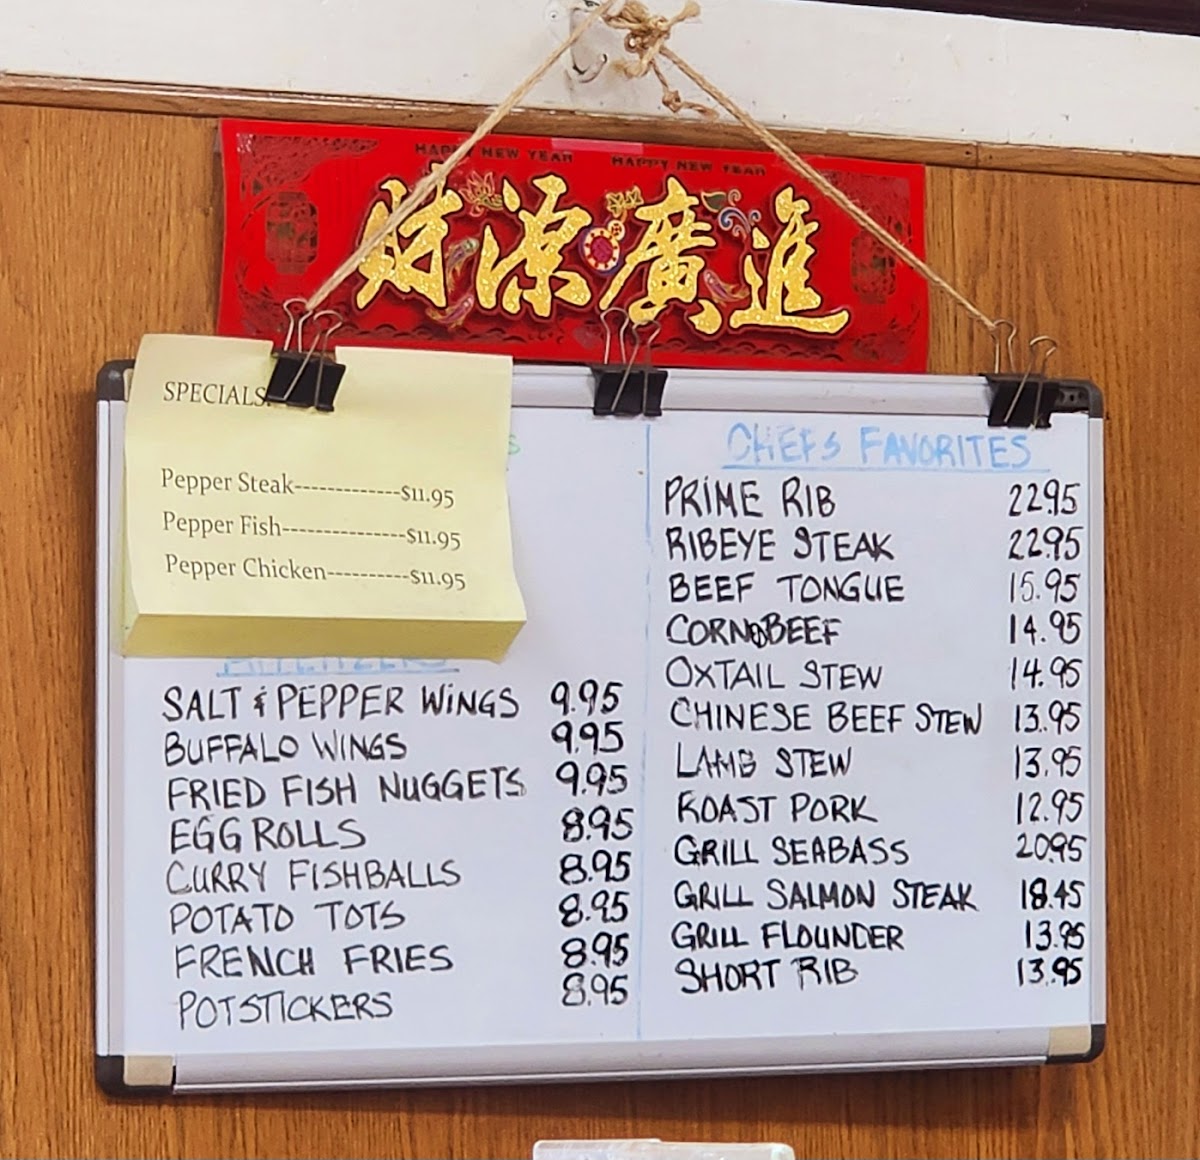 HAPPY NEW YEAR HAPPY NEW YEAR
財源廣進
SPECIALS
Pepper Steak-------------$11.95
Pepper Fish---------------$11.95
Pepper Chicken----------$11.95
APPETIZERS
SALT & PEPPER WINGS 9.95
BUFFALO WINGS 9.95
FRIED FISH NUGGETS 9.95
EGG ROLLS 8.95
CURRY FISHBALLS 8.95
POTATO TOTS 8.95
FRENCH FRIES 8.95
POTSTICKERS 8.95
CHEFS FAVORITES
PRIME RIB 2295
RIBEYE STEAK 2295
BEEF TONGUE 15.95
CORN BEEF 14.95
OXTAIL STEW 14.95
CHINESE BEEF STEW 13.95
LAMB STEW 13.95
ROAST PORK 12.95
GRILL SEABASS 2095
GRILL SALMON STEAK 18.45
GRILL FLOUNDER 13.95
SHORT RIB 13.95